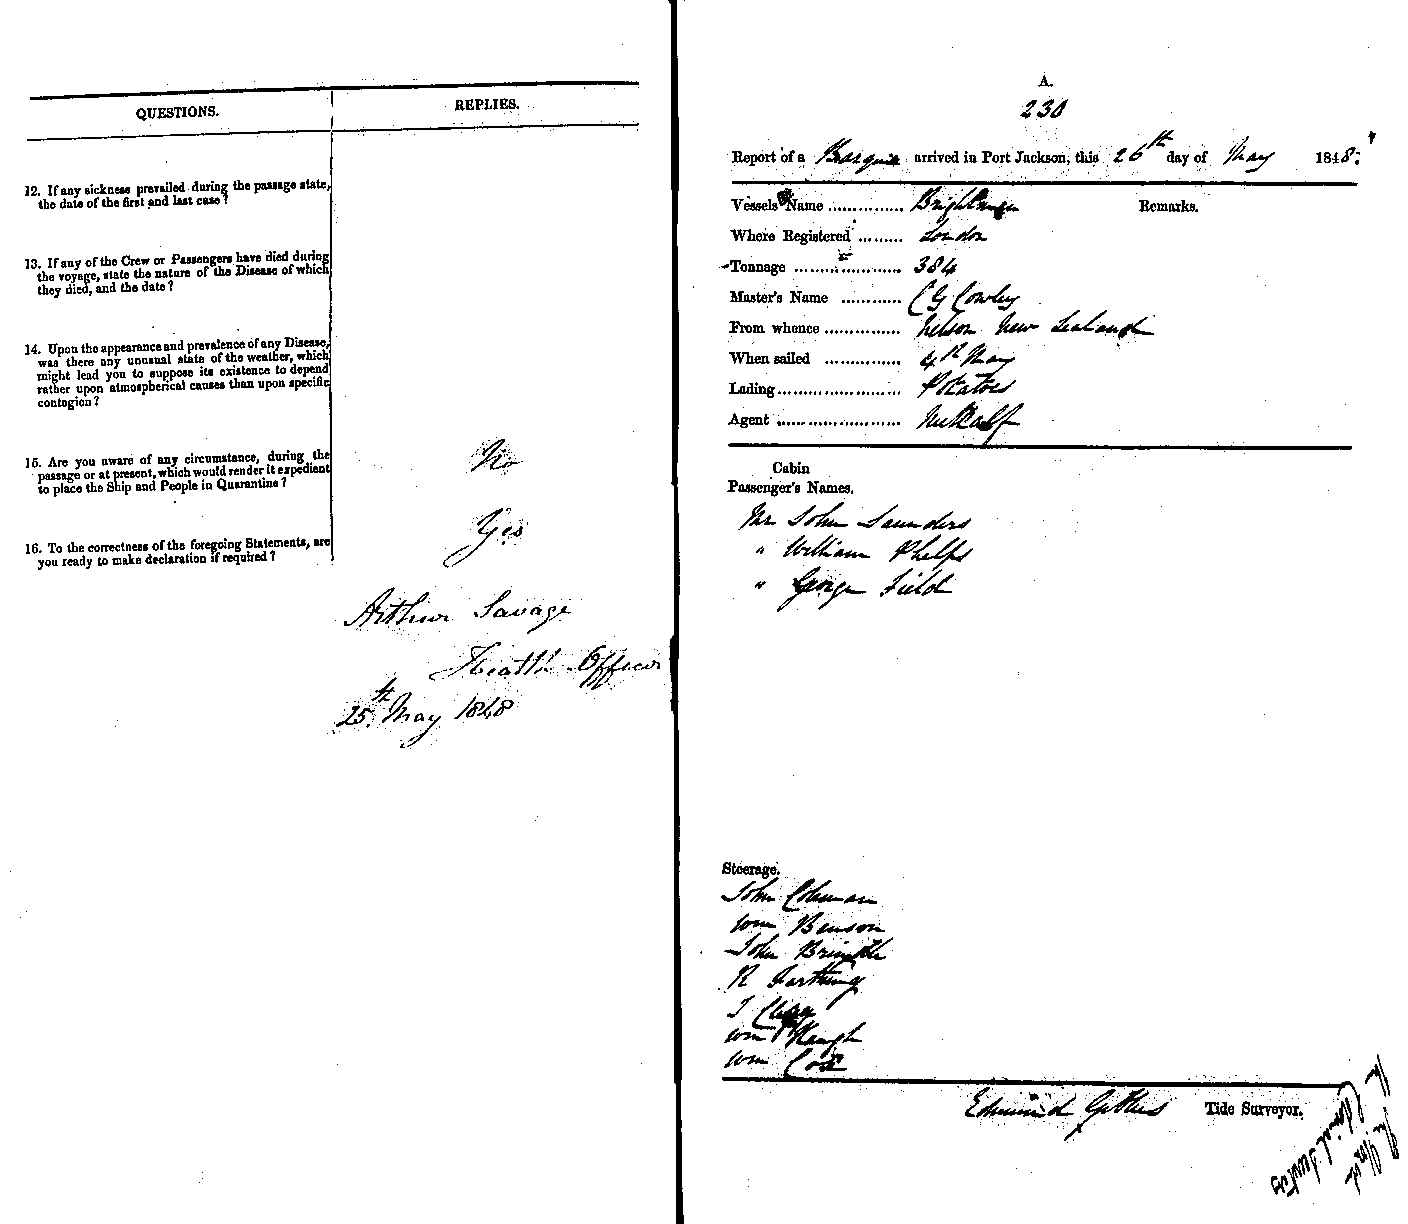 QUESTIONS.
REPLIES.
12. If any sickness prevailed during the passage state,
the date of the first and last case?
13. If any of the Crew or Passengers have died during
the voyage, state the nature of the Disease of which
they died, and the date?
14. Upon the appearance and prevalence of any Disease,
was there any unusual state of the weather, which
might lead you to suppose its existence to depend
rather upon atmospherical causes than upon specific
contagion?
15. Are you aware of any circumstance, during the
passage or at present, which would render it expedient
to place the Ship and People in Quarantine?
No
16. To the correctness of the foregoing Statements, are
you ready to make declaration if required?
Yes
Arthur Savage
Health Officer
25th May 1848
A.
230
Report of a Barque arrived in Port Jackson, this 26th day of May 1848.
Vessels Name ............... Brightman
Remarks.
Where Registered ......... London
Tonnage ..................... 384
Master's Name ............ C G Cowley
From whence ............... Nelson New Zealand
When sailed ............... 4th May
Lading ........................ Potatoes
Agent ........................ Metcalf
Cabin
Passenger's Names.
Mr John Saunders
" William Phelps
" George Field
Steerage.
John Coleman
Wm Benson
John
R Farthing
J
Wm
Wm Cox
Edmund Tide Surveyor.